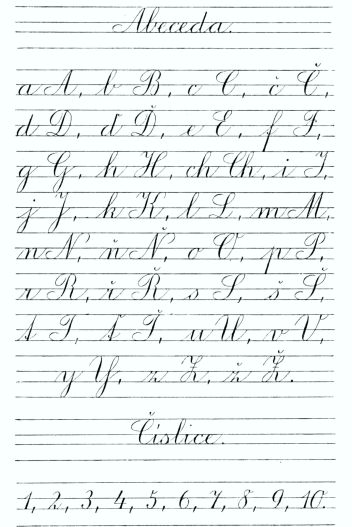 Abeceda.
a A, b B, c C, č Č,
d D, ď Ď, e E, f F,
g G, h H, ch Ch, i I,
j J, k K, l L, m M,
n N, ň Ň, o O, p P,
r R, ř Ř, s S, š Š,
t T, ť Ť, u U, v V,
y Y, z Z, ž Ž.
Číslice.
1, 2, 3, 4, 5, 6, 7, 8, 9, 10.